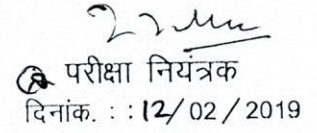 परीक्षा नियंत्रक
दिनांक. : : 12/ 02 / 2019